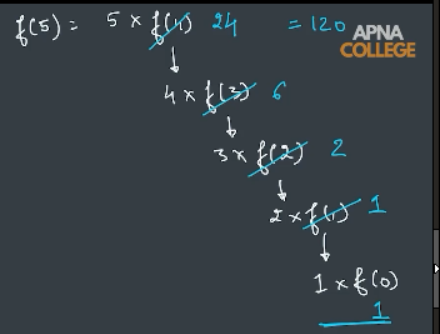 f(5) = 5 × f(4) 24 = 120
APNA
COLLEGE
4 × f(3) 6
3 × f(2) 2
2 × f(1) 1
1 × f(0)
1